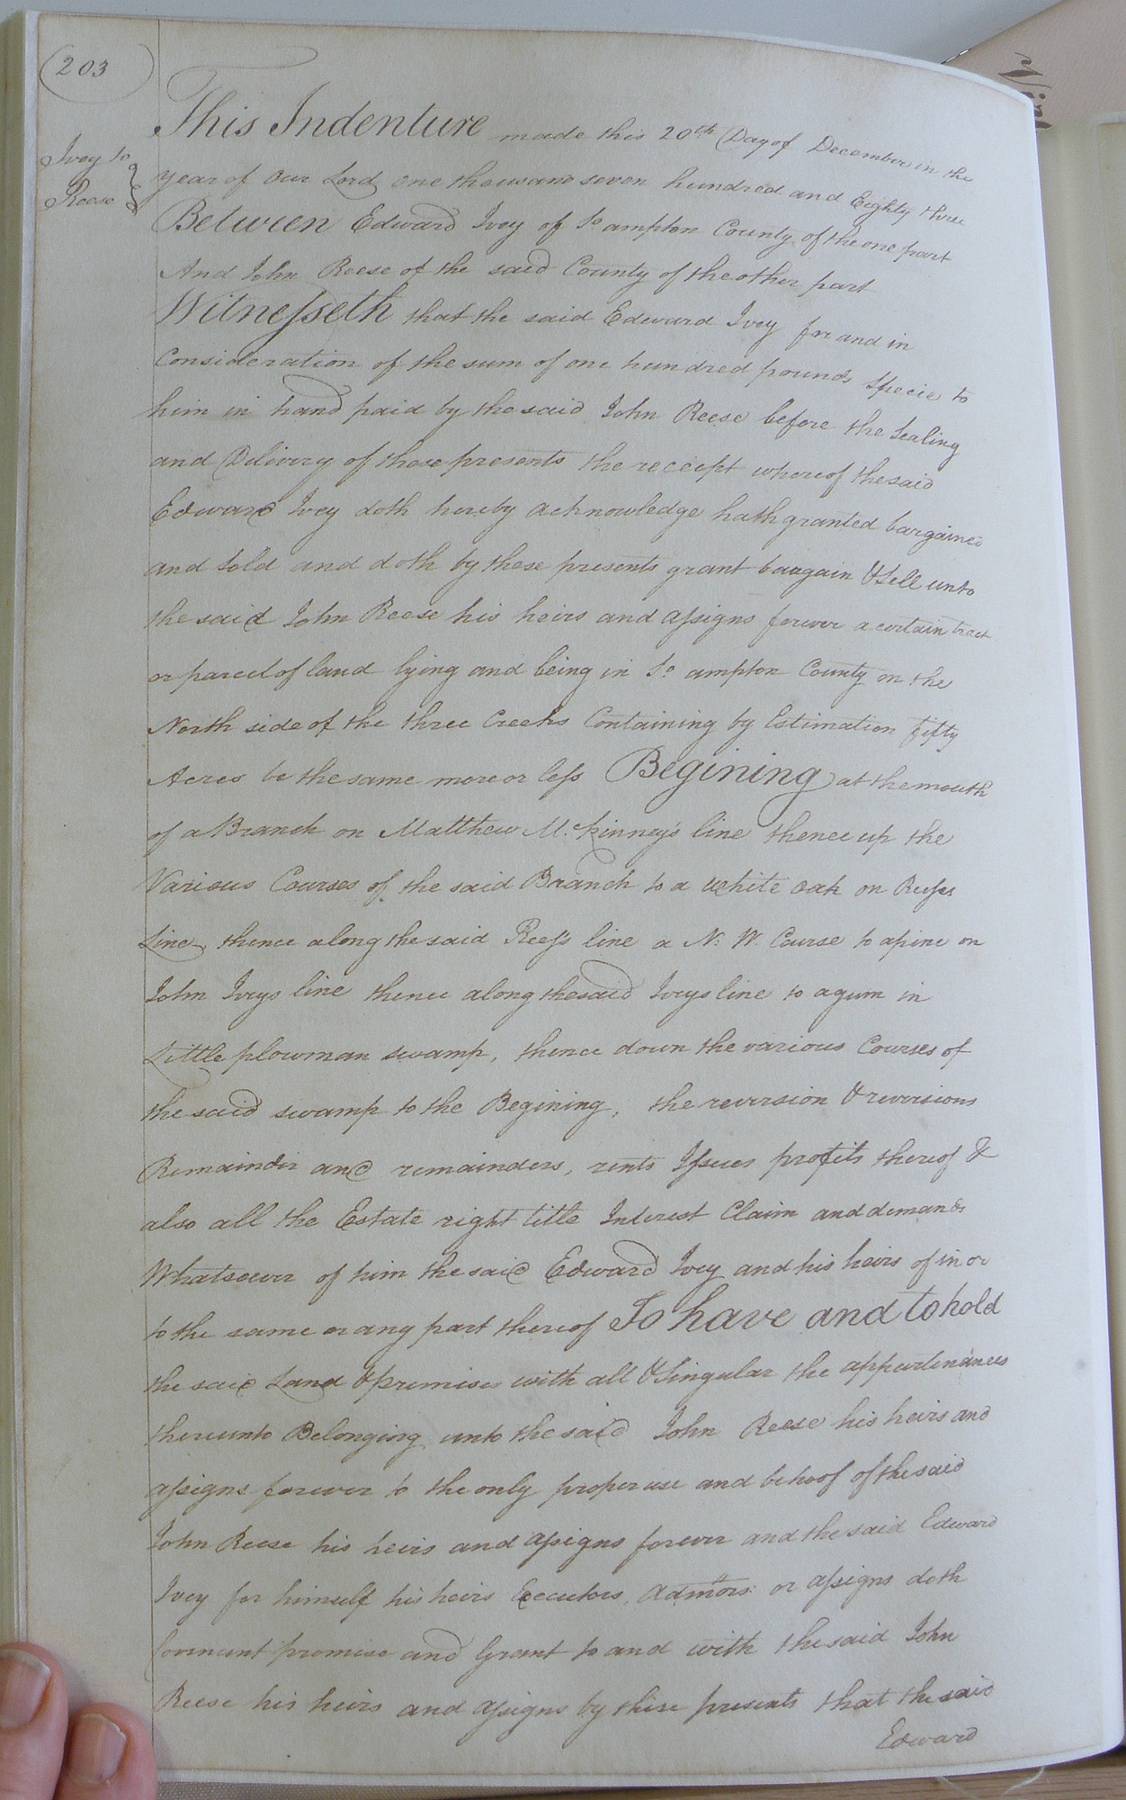 203
Ivey to
Reese
This Indenture made this 20th Day of December in the
year of our Lord one thousand seven hundred and Eighty three
Between Edward Ivey of So ampton County of the one part
And John Reese of the said County of the other part
Witnesseth that the said Edward Ivey for and in
Consideration of the sum of one hundred pounds Specie to
him in hand paid by the said John Reese before the Sealing
and Delivery of these presents the receipt whereof the said
Edward Ivey doth hereby acknowledge hath granted bargained
and Sold and doth by these presents grant bargain & Sell unto
the said John Reese his heirs and assigns forever a certain tract
or parcel of land lying and being in So ampton County on the
North side of the three Creeks Containing by Estimation fifty
Acres be the same more or less Begining at the mouth
of a Branch on Matthew McKinney's line thence up the
Various Courses of the said Branch to a white oak on Reess
Line, thence along the said Rees's line a N. W. Course to a pine on
John Iveys line thence along the said Iveys line to a gum in
Little plowman swamp, thence down the various Courses of
the said swamp to the Begining, the reversion & reversions
Remainder and remainders, rents Issues profits thereof &
also all the Estate right title Interest Claim and demands
Whatsoever of him the said Edward Ivey and his heirs of in or
to the same or any part thereof To have and to hold
the said Land & premises with all & Singular the appurtenances
thereunto Belonging unto the said John Reese his heirs and
assigns forever to the only proper use and behoof of the said
John Reese his heirs and assigns forever and the said Edward
Ivey for himself his heirs Executors, Admors: or assigns doth
Covenant promise and Grant to and with the said John
Reese his heirs and assigns by these presents that the said
Edward